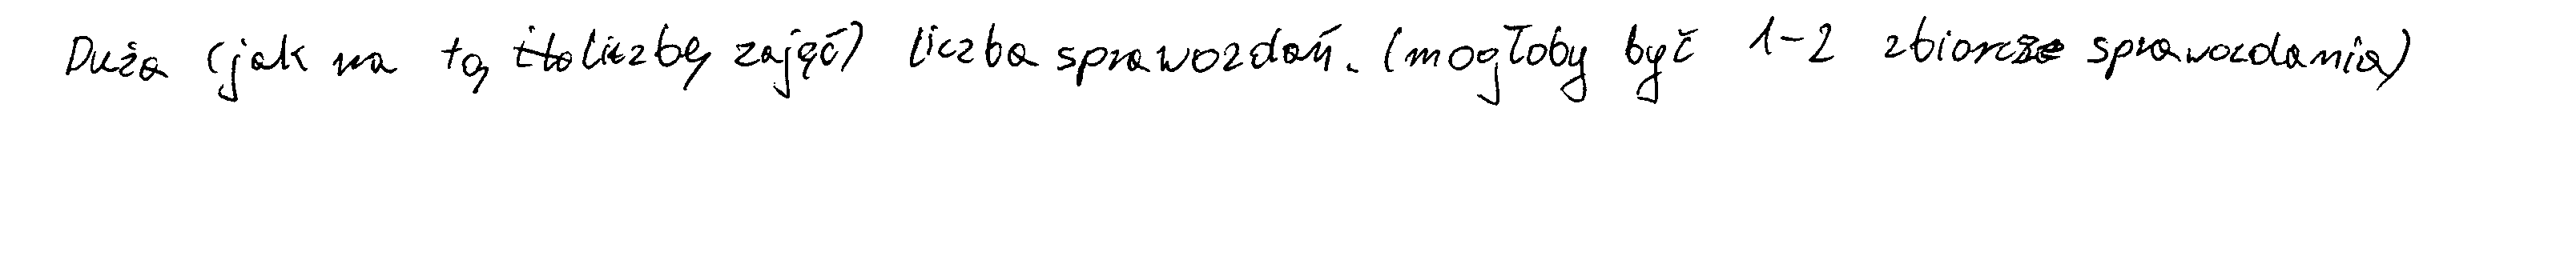 Duża (jak na tą liczbę zajęć) liczba sprawozdań. (mogłoby być 1-2 zbiorcze sprawozdania)